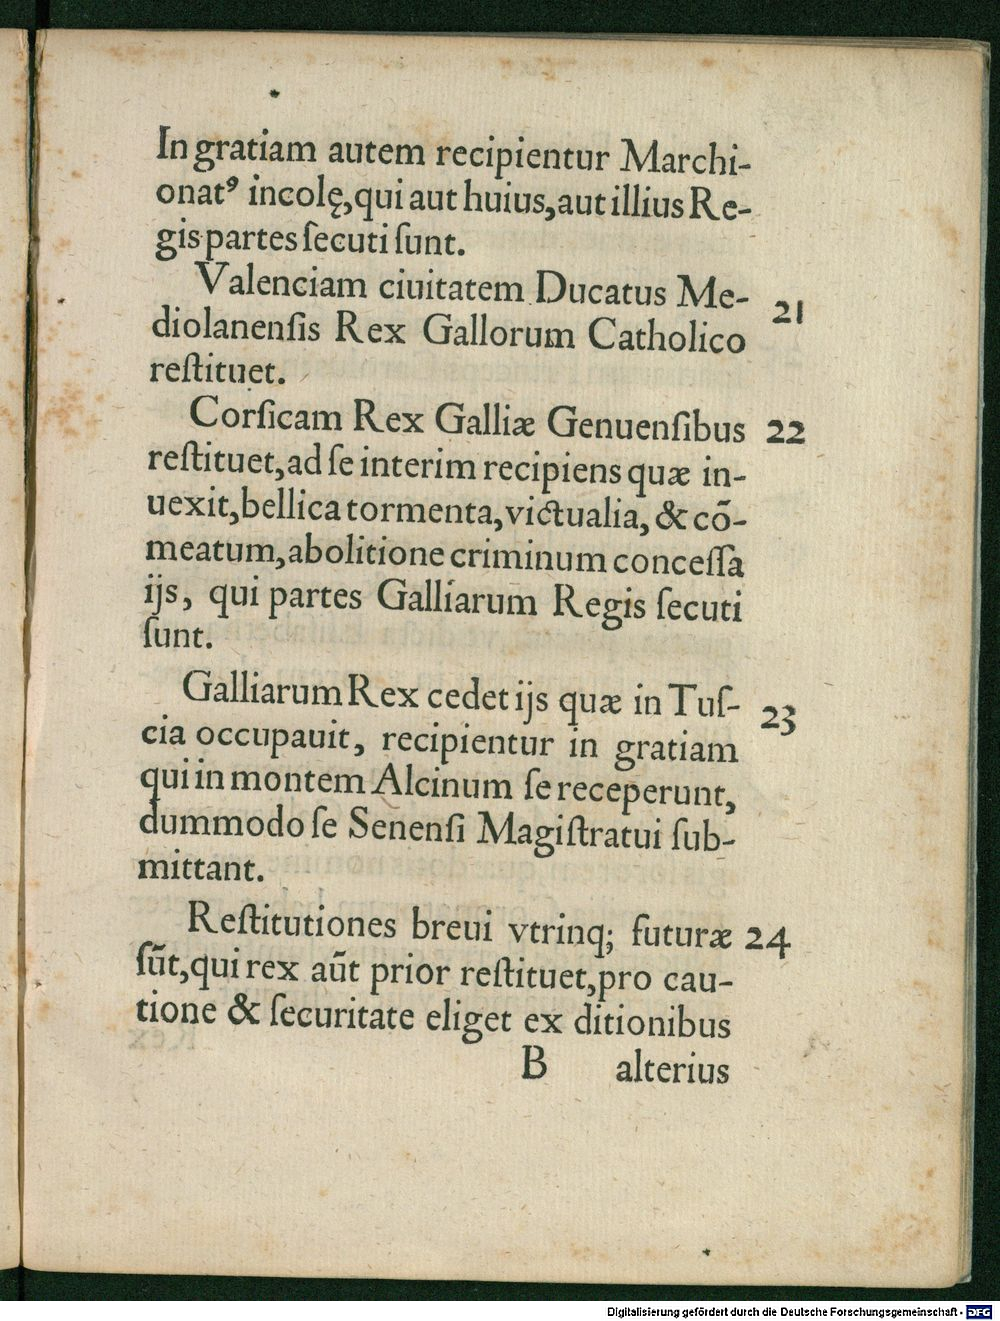 In gratiam autem recipientur Marchi-
onatꝰ incolę, qui aut huius, aut illius Re-
gis partes ſecuti ſunt.
Valenciam ciuitatem Ducatus Me- 21
diolanenſis Rex Gallorum Catholico
reſtituet.
Corſicam Rex Galliæ Genuenſibus 22
reſtituet, ad ſe interim recipiens quæ in-
uexit, bellica tormenta, victualia, & cõ-
meatum, abolitione criminum conceſſa
ijs, qui partes Galliarum Regis ſecuti
ſunt.
Galliarum Rex cedet ijs quæ in Tuſ- 23
cia occupauit, recipientur in gratiam
qui in montem Alcinum ſe receperunt,
dummodo ſe Senenſi Magiſtratui ſub-
mittant.
Reſtitutiones breui vtrinq; futuræ 24
ſũt, qui rex aũt prior reſtituet, pro cau-
tione & ſecuritate eliget ex ditionibus
B alterius
Digitalisierung gefördert durch die Deutsche Forschungsgemeinschaft - DFG